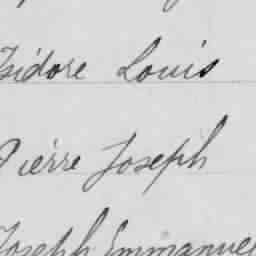 Isidore Louis
Pierre Joseph
Joseph Emmanuel